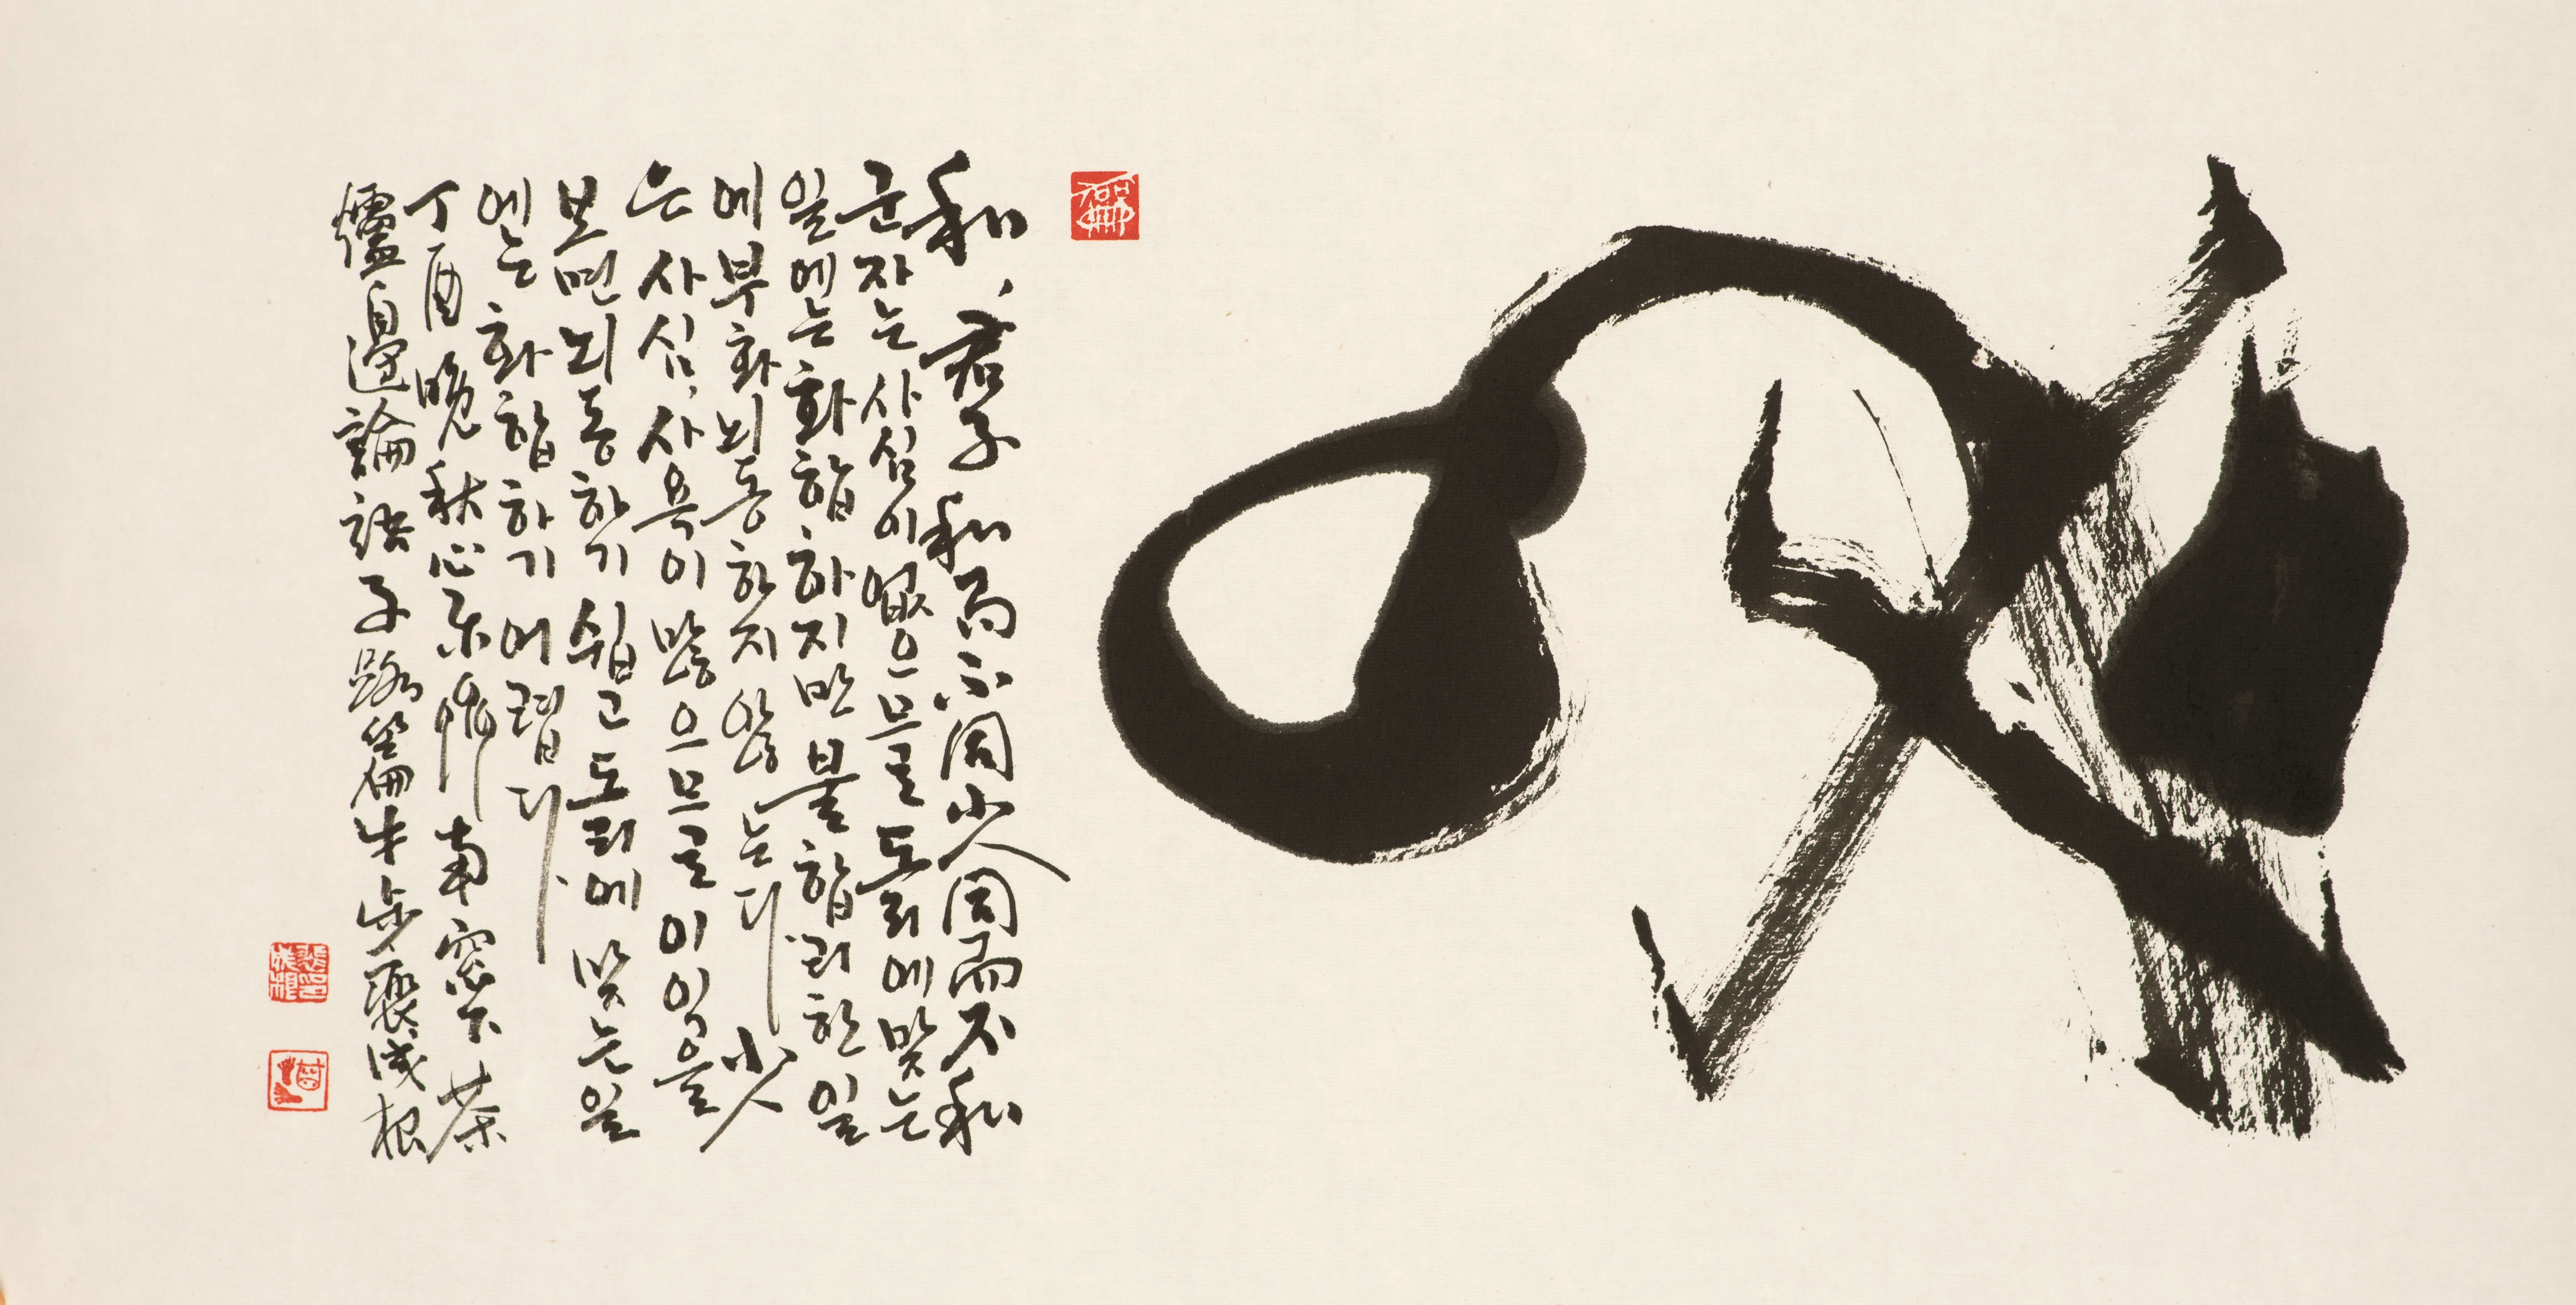 和
和, 君子和而不同小人同而不和
군자는 사심이 없으므로 도리에 맞는
일에는 화합하지만 불합리한 일
에 부화뇌동하지 않는다. 小人
은 사심, 사욕이 많으므로 이익을
보면 뇌동하기 쉽고 도리에 맞는 일
에는 화합하기 어렵다.
丁酉晩秋心 南窓下茶
爐邊論語子路篇 成根